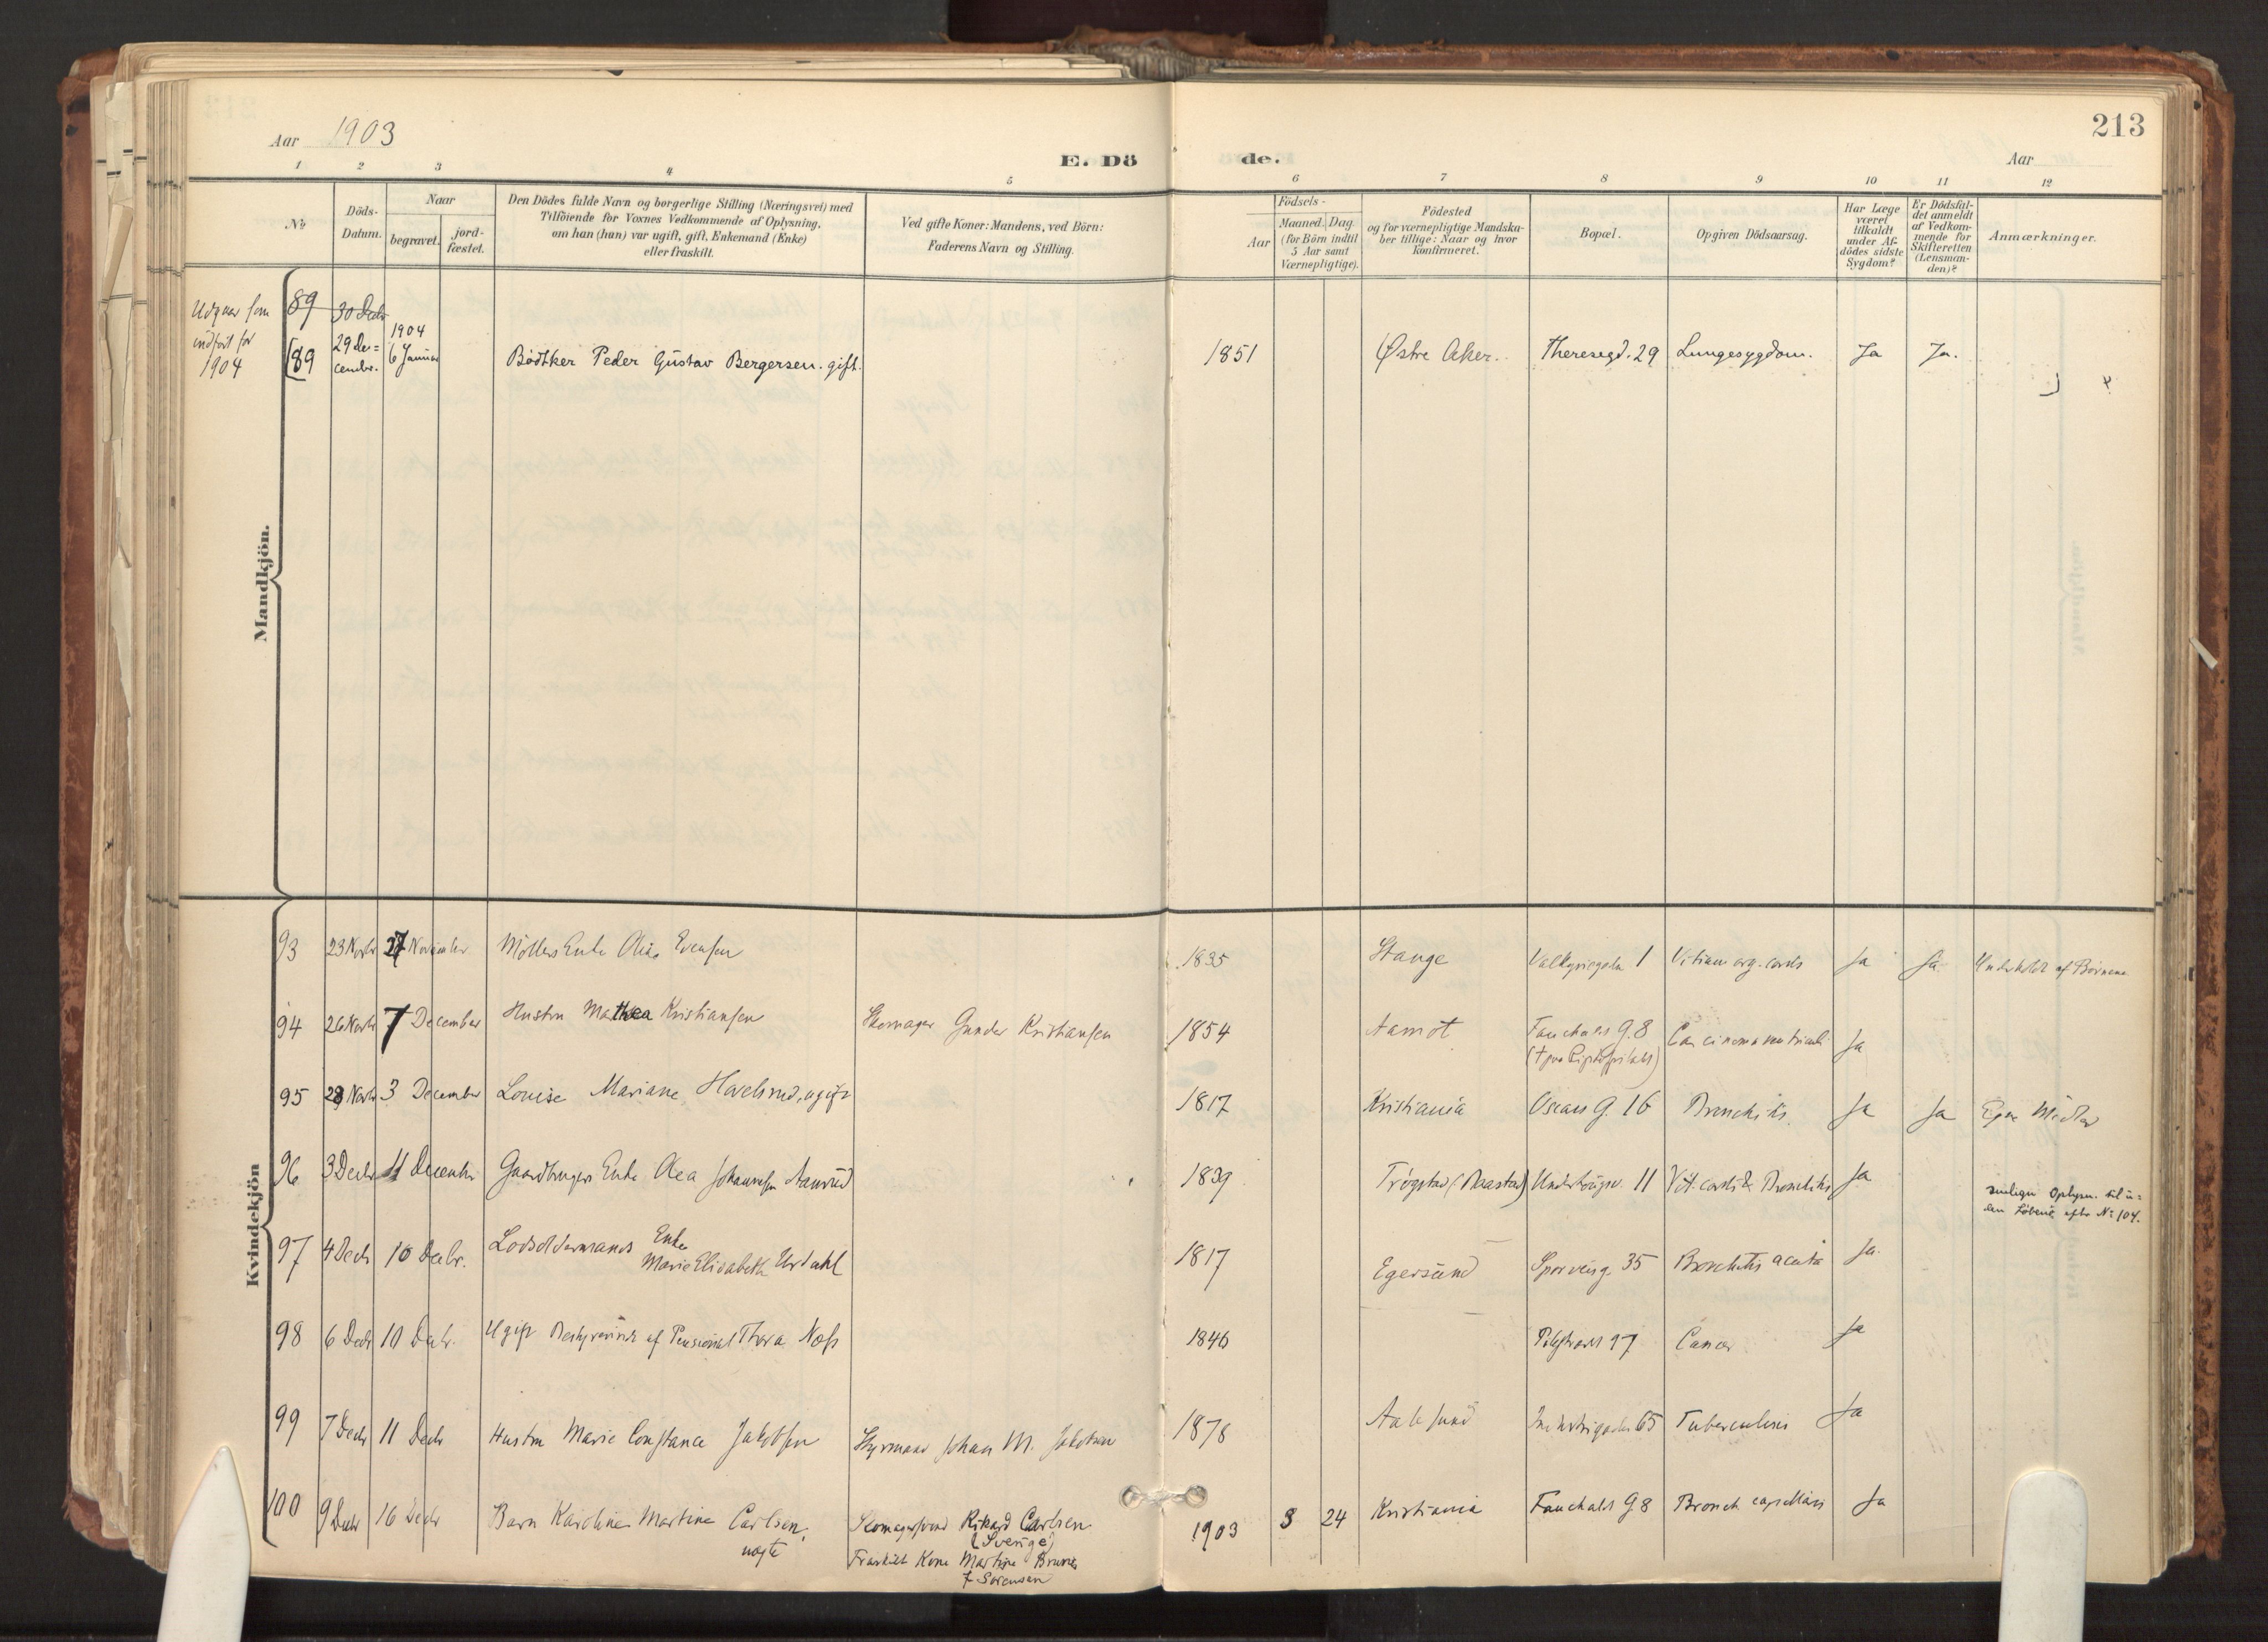 Aar 1903
213
E. Dö de.
Aar
1 2 3 4 5 6 7 8 9 10 11 12
No
Döds-Datum.
Naar
begravet.
jord-fæstet.
Den Dödes fulde Navn og borgerlige Stilling (Næringsvei) med
Tilföiende for Voxnes Vedkommende af Oplysning,
om han (hun) var ugift, gift, Enkemand (Enke)
eller fraskilt.
Ved gifte Koner: Mandens, ved Börn:
Faderens Navn og Stilling.
Födsels-
Aar
Maaned. Dag
(for Börn indtil
5 Aar samt
Værnepligtige).
Födested
og for værnepligtige Mandska-
ber tillige: Naar og hvor
konfirmeret.
Bopæl.
Opgiven Dödsaarsag.
Har Læge
været
tilkaldt
under Af-
dödes sidste
Sygdom?
Er Dödsfal-
det anmeldt
af Vedkom-
mende for
Skifteretten
(Lensman-
den)?
Anmærkninger.
Mandkjön.
Udgaar som
indført for
1904
89 30 Decbr
89 29 De=
cembr. 1904
6 Januar Bödtker Peder Gustav Bergersen. gift. 1851 Østre Aker. Theresegd. 29 Lungesygdom. Ja Ja.
Kvindekjön
93 23 Novbr 27 November Möllers Enke Olia Evensen 1835 Stange Valkyriegata 1 Vitium org. cordis Ja Ja Underholdt af Børnene
94 26 Novbr 7 December Hustru Mathea Kristiansen Skomager Gunder Kristiansen 1854 Aamot Fauchalds G. 8 Carcinoma ventriculi Ja
95 28 Novbr 3 December Louise Mariane Hovelsrud, ugift 1817 Kristiania Oscars G. 16 Bronchitis. Ja Ja Egne Midler
96 3 Decbr 11 Decembr Gaardbrugers Enke Olea Johannesen Aamrud 1839 Trøgstad (Baastad) 11 Vit. cordis & Bronchitis Ja
Oplysn. til
efter No 104.
97 4 Decbr 10 Decbr. Lodsoldermands Enke
Marie Elisabeth Urdahl 1817 Egersund Sporveisg. 35 Bronchitis acuta Ja.
98 6 Decbr 10 Decbr. Ugift Bestyrerinde af Pensionat Thora Næss 1846 Pilestrædet 97 Cancer Ja
99 7 Decbr 11 Decbr Hustru Marie Constance Jakobsen Styrmand Johan M. Jakobsen 1878 Aalesund Industrigaden 65 Tuberculosis Ja
100 9 Decbr 16 Decbr Barn Karoline Martine Carlsen, uægte Skomagersvend Rikard Carlsen
(Sverige)
Fraskilt Kone Martine Bruun
f Sørensen 1903 3 24 Kristiania Fauchalds G 8 Bronch capillaris Ja